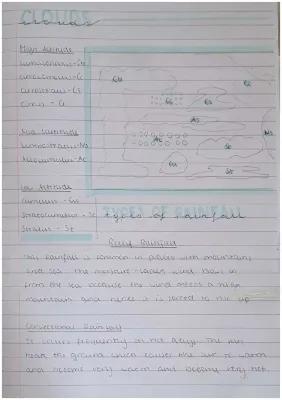 CLOUDS
clouds
High Altitude
Cirrocumulus - Cc
Cirrostratus - Cs
Cirrus - Ci
Mid Altitude
Altocumulus - Ac
Low Altitude
Cumulus - Cu
Stratocumulus - Sc
Stratus - St
TYPES OF RAINFALL
types of rainfall
Relief Rainfall
This rainfall is common in places with mountains
and sea. The moisture-laden wind blows in
from the sea because the wind meets a high
mountain and hence it is forced to rise up
Convectional Rainfall
It occurs frequently on hot days. The sun
heats the ground which causes the air to warm
and become very warm and become very hot.